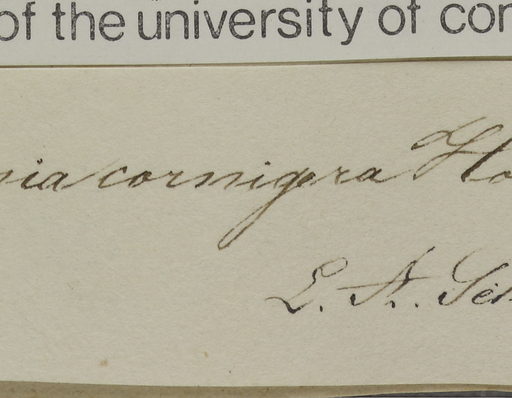 of the university of con
nia cornigera Ho
L. A. Sch